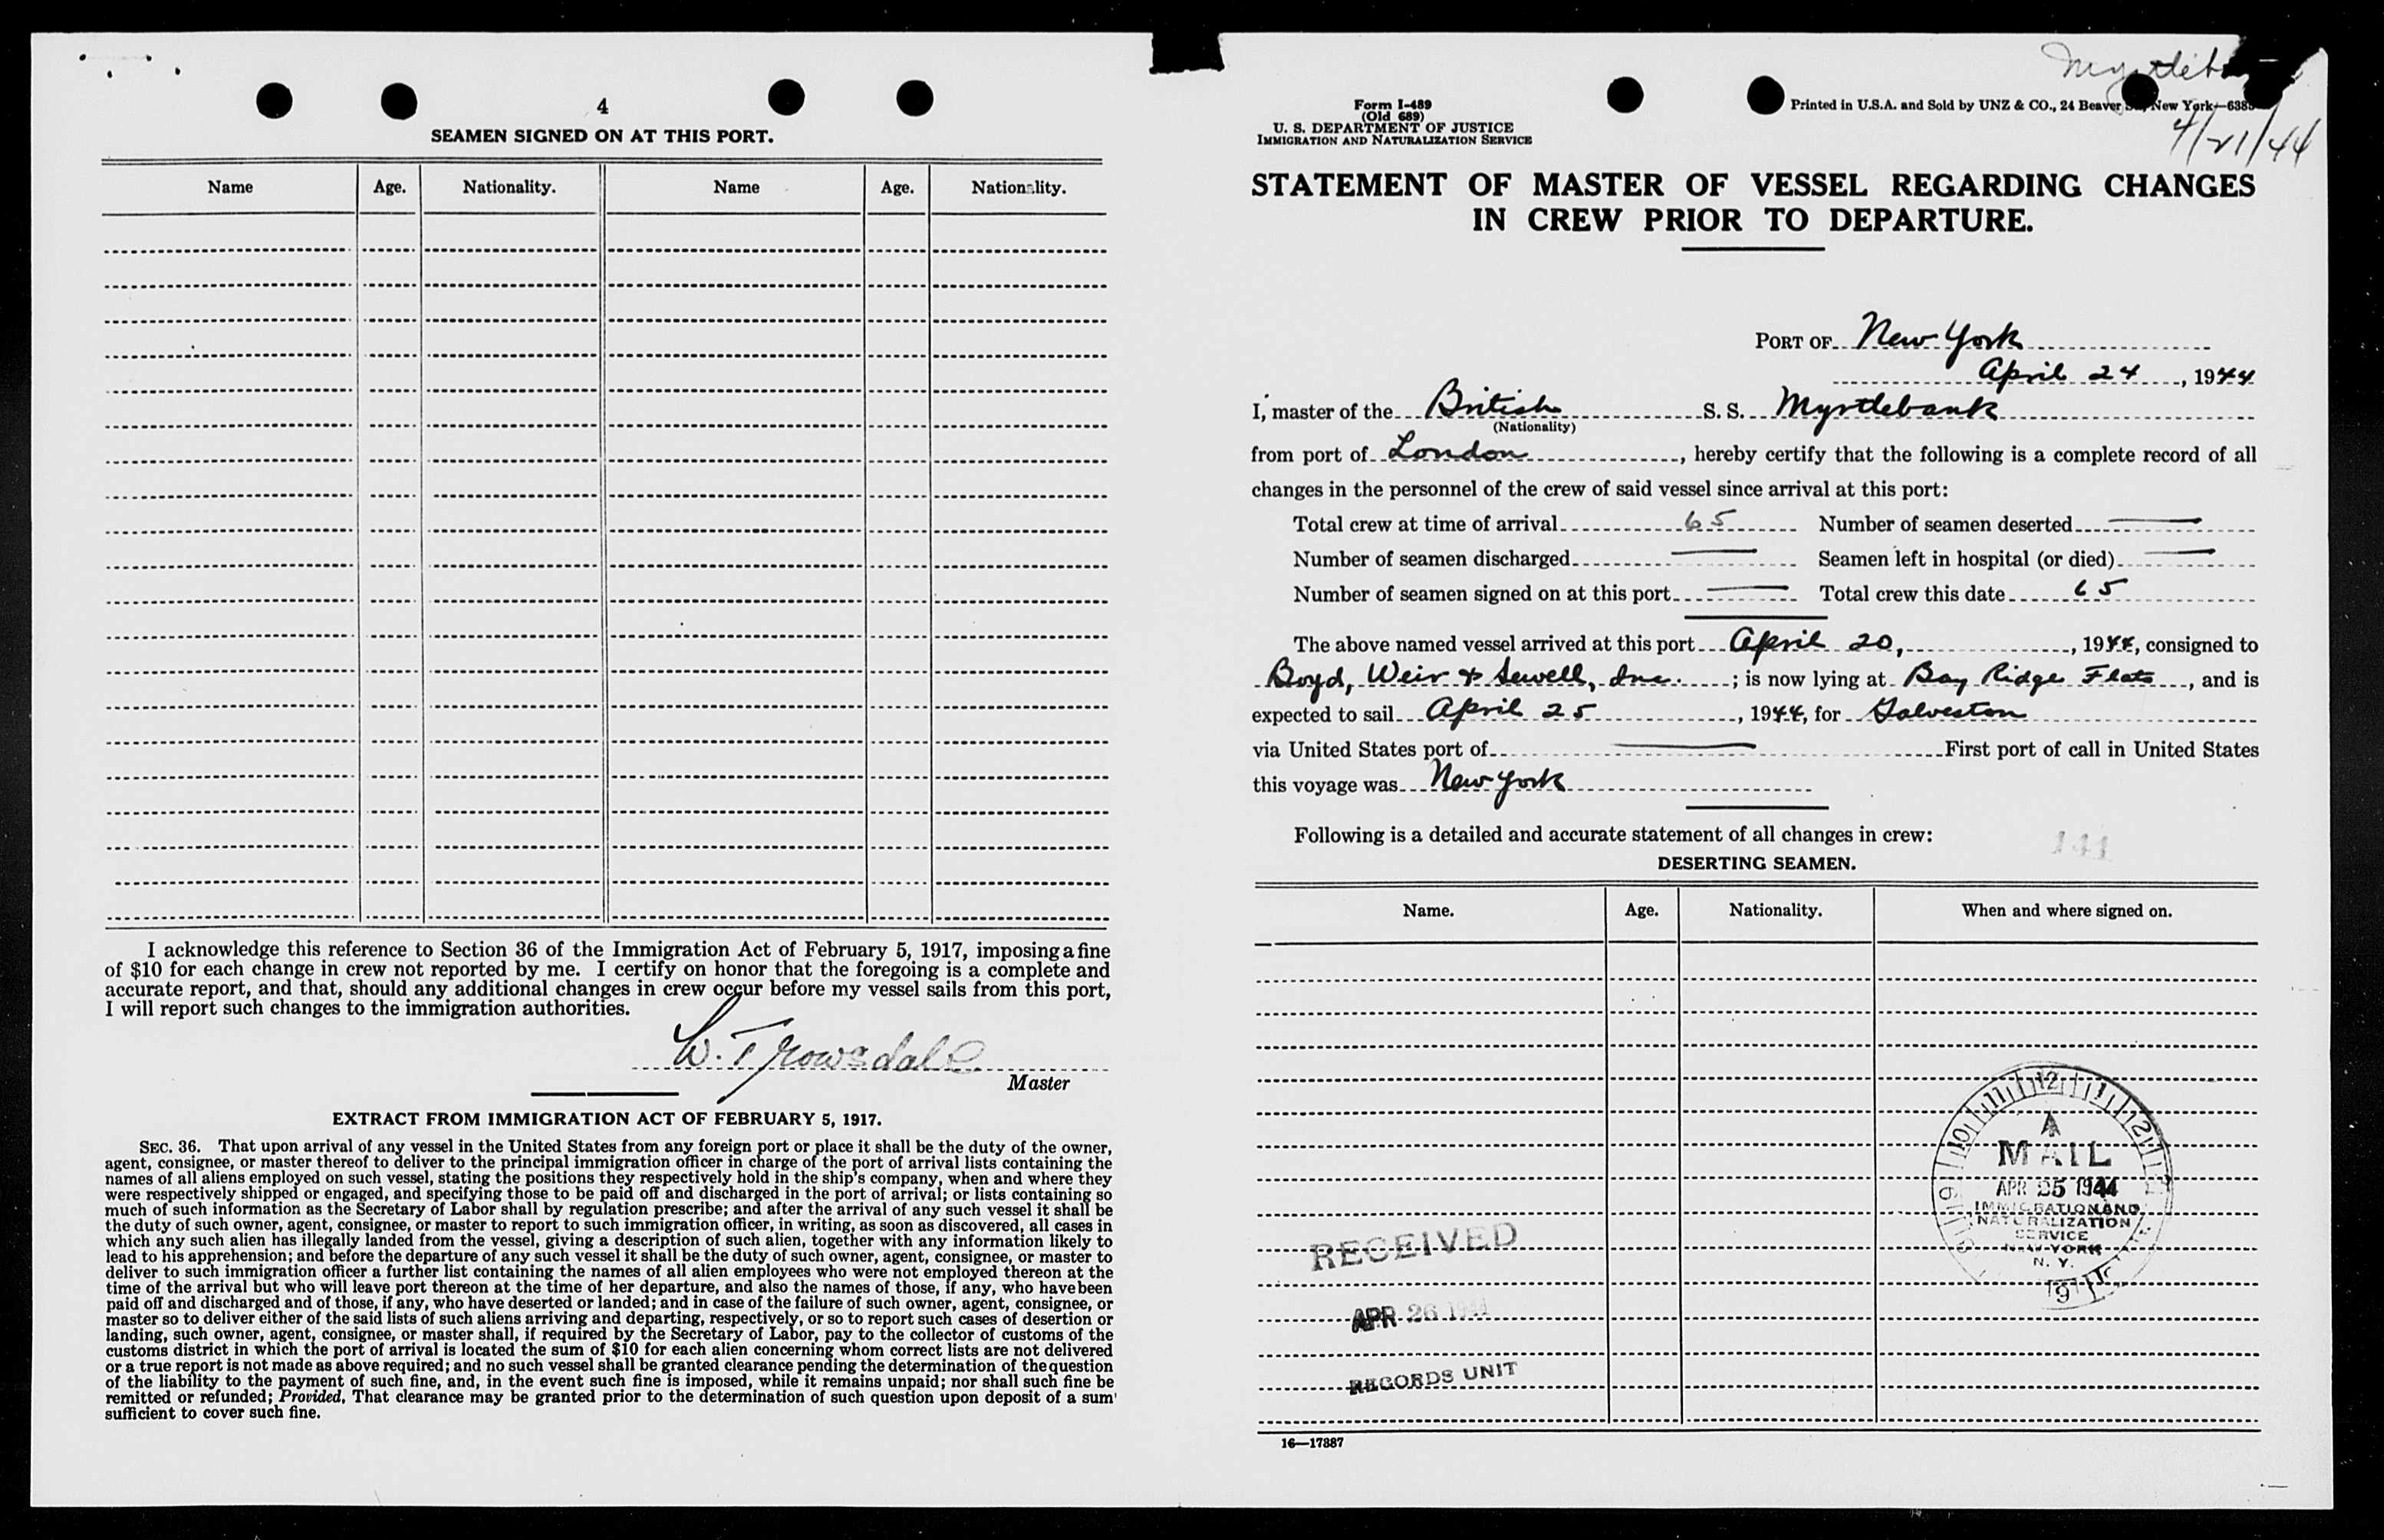 4
SEAMEN SIGNED ON AT THIS PORT.
Name Age. Nationality. Name Age. Nationality.
I acknowledge this reference to Section 36 of the Immigration Act of February 5, 1917, imposing a fine
of $10 for each change in crew not reported by me. I certify on honor that the foregoing is a complete and
accurate report, and that, should any additional changes in crew occur before my vessel sails from this port,
I will report such changes to the immigration authorities.
W. Trowsdale
Master
EXTRACT FROM IMMIGRATION ACT OF FEBRUARY 5, 1917.
SEC. 36. That upon arrival of any vessel in the United States from any foreign port or place it shall be the duty of the owner,
agent, consignee, or master thereof to deliver to the principal immigration officer in charge of the port of arrival lists containing the
names of all aliens employed on such vessel, stating the positions they respectively hold in the ship's company, when and where they
were respectively shipped or engaged, and specifying those to be paid off and discharged in the port of arrival; or lists containing so
much of such information as the Secretary of Labor shall by regulation prescribe; and after the arrival of any such vessel it shall be
the duty of such owner, agent, consignee, or master to report to such immigration officer, in writing, as soon as discovered, all cases in
which any such alien has illegally landed from the vessel, giving a description of such alien, together with any information likely to
lead to his apprehension; and before the departure of any such vessel it shall be the duty of such owner, agent, consignee, or master to
deliver to such immigration officer a further list containing the names of all alien employees who were not employed thereon at the
time of the arrival but who will leave port thereon at the time of her departure, and also the names of those, if any, who have been
paid off and discharged and of those, if any, who have deserted or landed; and in case of the failure of such owner, agent, consignee, or
master so to deliver either of the said lists of such aliens arriving and departing, respectively, or so to report such cases of desertion or
landing, such owner, agent, consignee, or master shall, if required by the Secretary of Labor, pay to the collector of customs of the
customs district in which the port of arrival is located the sum of $10 for each alien concerning whom correct lists are not delivered
or a true report is not made as above required; and no such vessel shall be granted clearance pending the determination of the question
of the liability to the payment of such fine, and, in the event such fine is imposed, while it remains unpaid; nor shall such fine be
remitted or refunded; Provided, That clearance may be granted prior to the determination of such question upon deposit of a sum
sufficient to cover such fine.
4/21/44
Form I-489
(Old 689)
U. S. DEPARTMENT OF JUSTICE
IMMIGRATION AND NATURALIZATION SERVICE
Printed in U.S.A. and Sold by UNZ & CO., 24 Beaver New York
STATEMENT OF MASTER OF VESSEL REGARDING CHANGES
IN CREW PRIOR TO DEPARTURE.
PORT OF New York
April 24, 1944
I, master of the British S. S. Myrtlebank
(Nationality)
from port of London, hereby certify that the following is a complete record of all
changes in the personnel of the crew of said vessel since arrival at this port:
Total crew at time of arrival 65 Number of seamen deserted —
Number of seamen discharged — Seamen left in hospital (or died) —
Number of seamen signed on at this port — Total crew this date 65
The above named vessel arrived at this port April 20, , 1944, consigned to
Boyd, Weir & Sewell, Inc. ; is now lying at Bay Ridge Flats, and is
expected to sail April 25, 1944, for Galveston
via United States port of — First port of call in United States
this voyage was New York
Following is a detailed and accurate statement of all changes in crew:
141
DESERTING SEAMEN.
Name. Age. Nationality. When and where signed on.
MAIL
APR 25 1944
IMMIGRATION AND
NATURALIZATION
SERVICE
NEW YORK
N. Y.
RECEIVED
APR 26 1944
RECORDS UNIT
16—17887